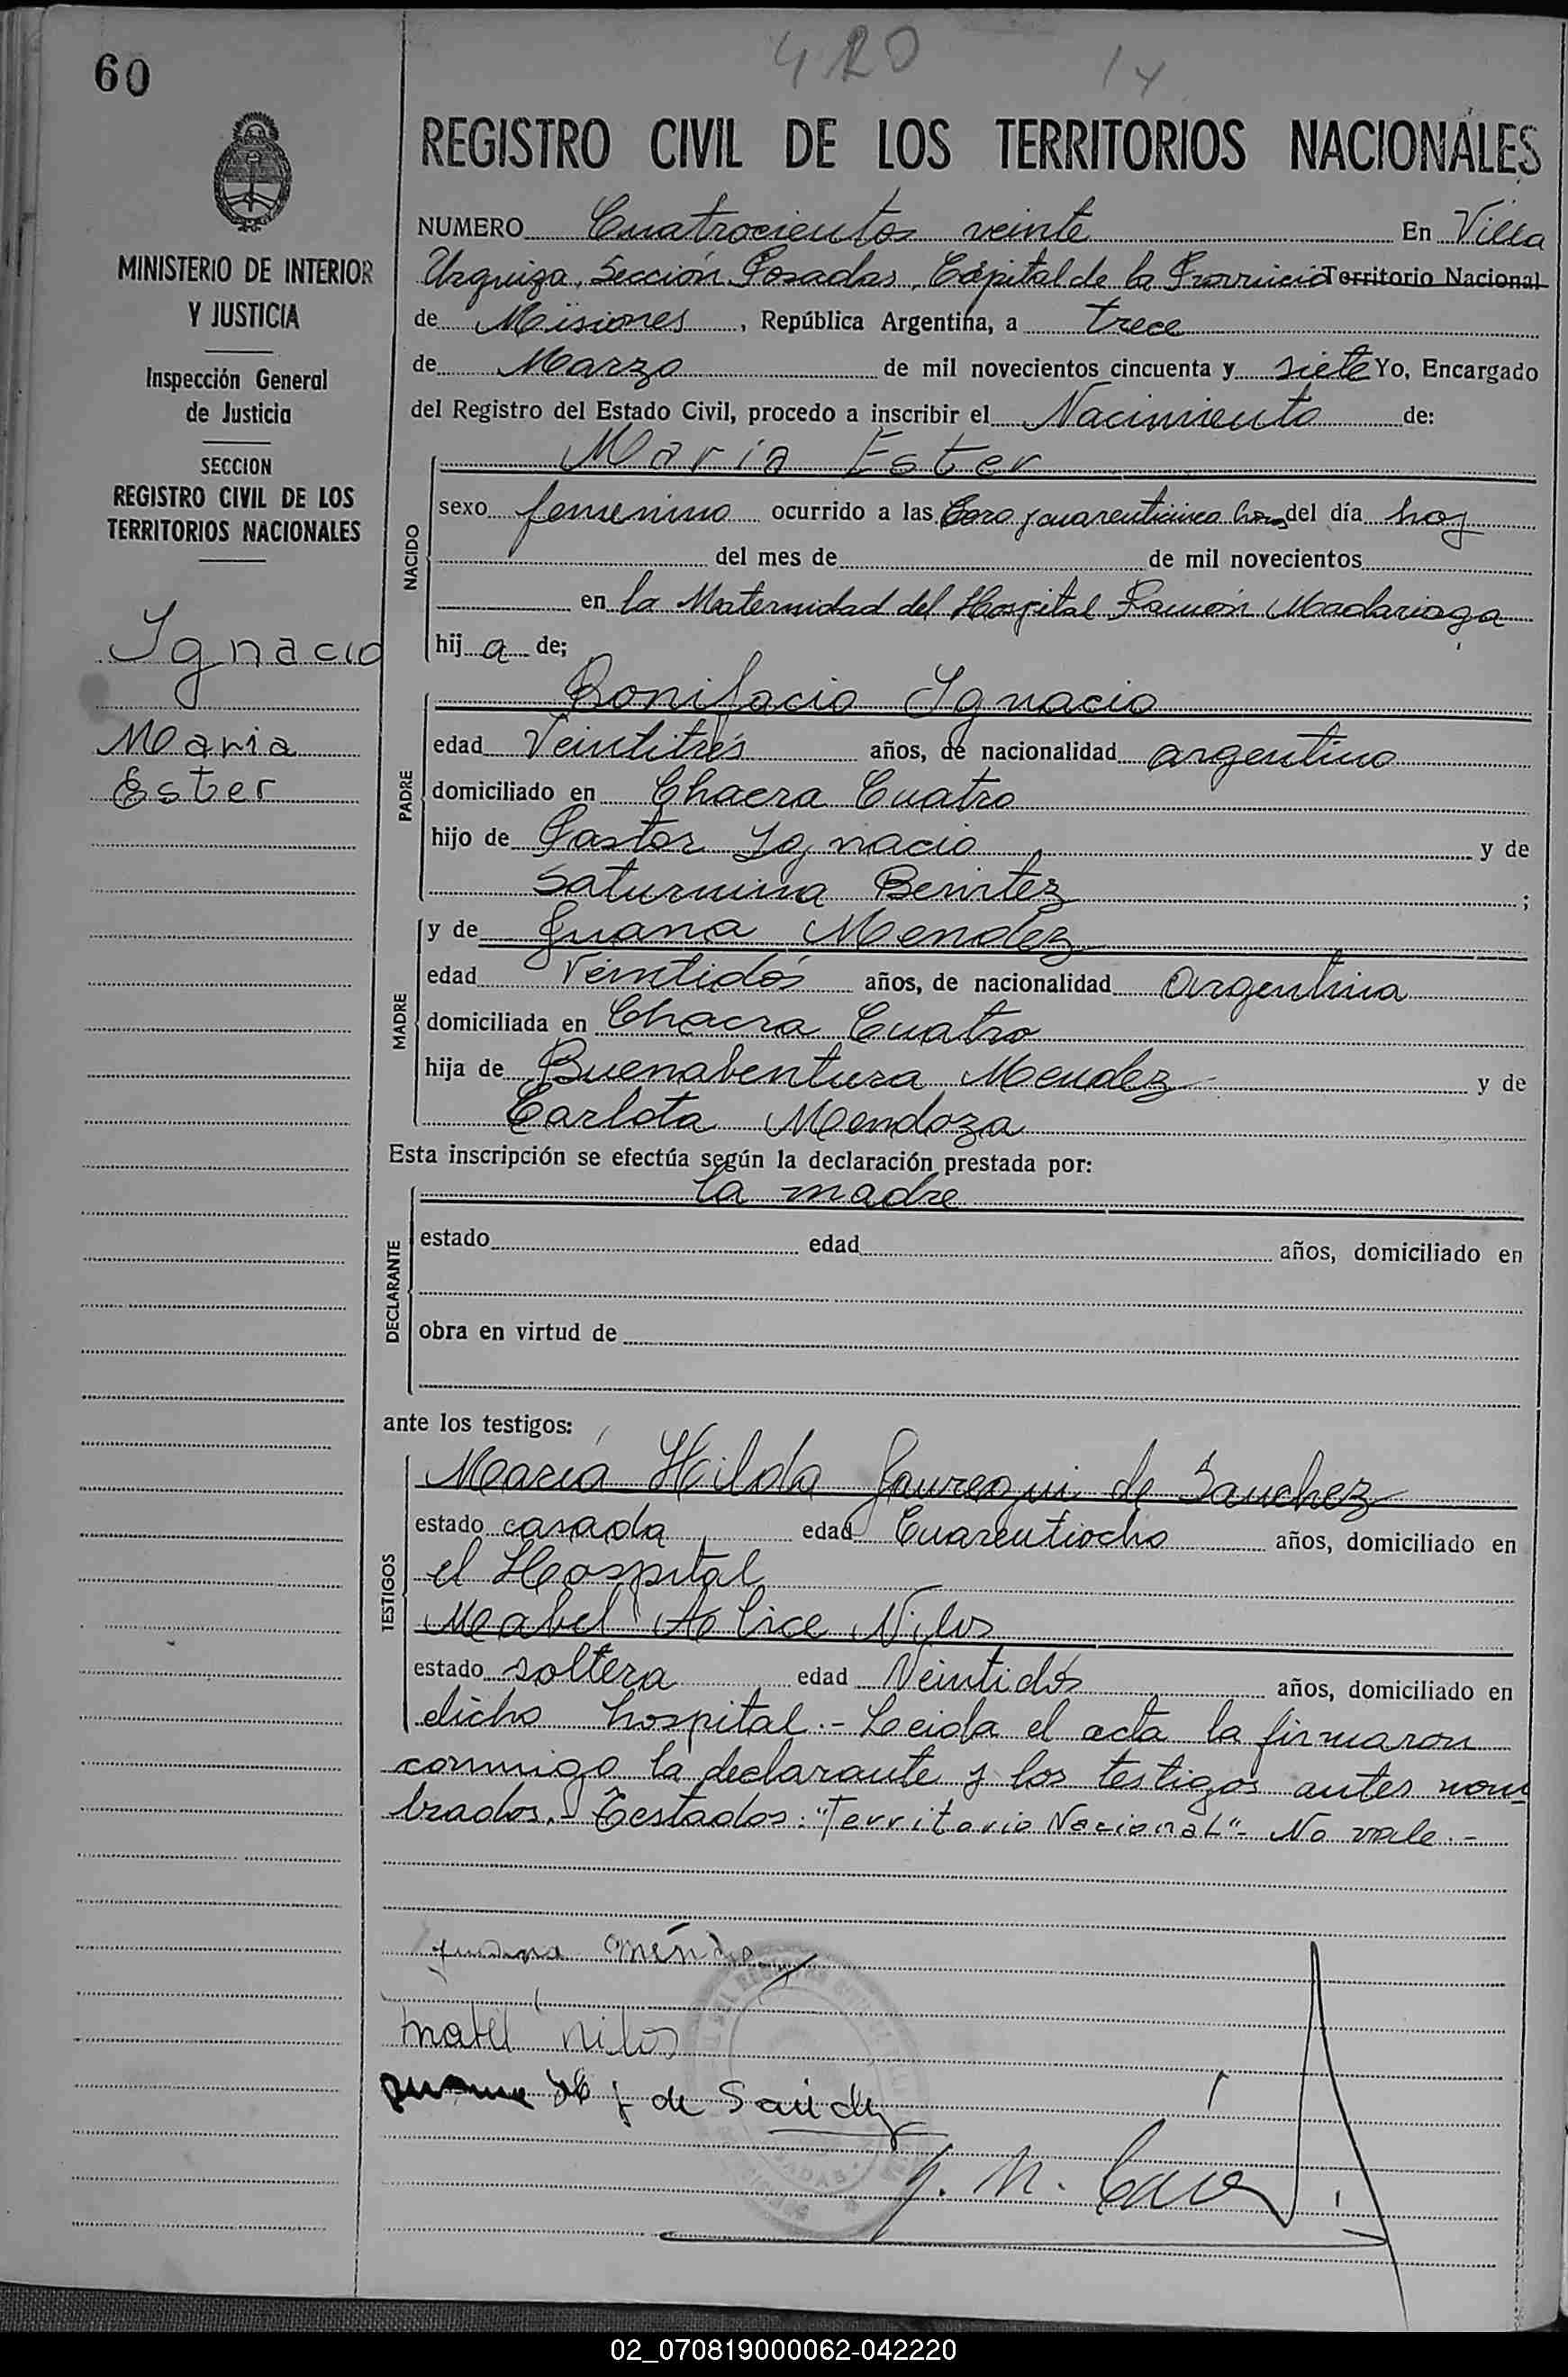 60
420
14
REGISTRO CIVIL DE LOS TERRITORIOS NACIONALES
MINISTERIO DE INTERIOR
Y JUSTICIA
Inspección General
de Justicia
SECCION
REGISTRO CIVIL DE LOS
TERRITORIOS NACIONALES
Ignacio
Maria
Ester
NUMERO Cuatrocientos veinte En Villa
Urquiza, Sección Posadas, Capital de la Provincia Territorio Nacional
de Misiones, República Argentina, a trece
de Marzo de mil novecientos cincuenta y siete Yo, Encargado
del Registro del Estado Civil, procedo a inscribir el Nacimiento de:
NACIDO
Maria Ester
sexo femenino ocurrido a las Cero y cuarenticinco horas del día hoy
del mes de de mil novecientos
en la Maternidad del Hospital Ramón Madariaga
hij a de;
PADRE
Bonifacio Ignacio
edad Veintitrés años, de nacionalidad argentino
domiciliado en Chacra Cuatro
hijo de Pastor Ignacio y de
Saturnina Benitez ;
MADRE
y de Juana Mendez
edad Veintidós años, de nacionalidad argentina
domiciliada en Chacra Cuatro
hija de Buenabentura Mendez y de
Carlota Mendoza
Esta inscripción se efectúa según la declaración prestada por:
DECLARANTE
la madre
estado edad años, domiciliado en
obra en virtud de
ante los testigos:
TESTIGOS
María Hilda Jauregui de Sanchez
estado casada edad Cuarentiocho años, domiciliado en
el Hospital
Mabel Alice Nilos
estado soltera edad Veintidós años, domiciliado en
dicho hospital.- Leida el acta la firmaron
conmigo la declarante y los testigos antes nom
brados.- Testados: "Territorio Nacional"- No vale.-
Juana Méndez
Mabel Nilos
H J de Sanchez
02_070819000062-042220